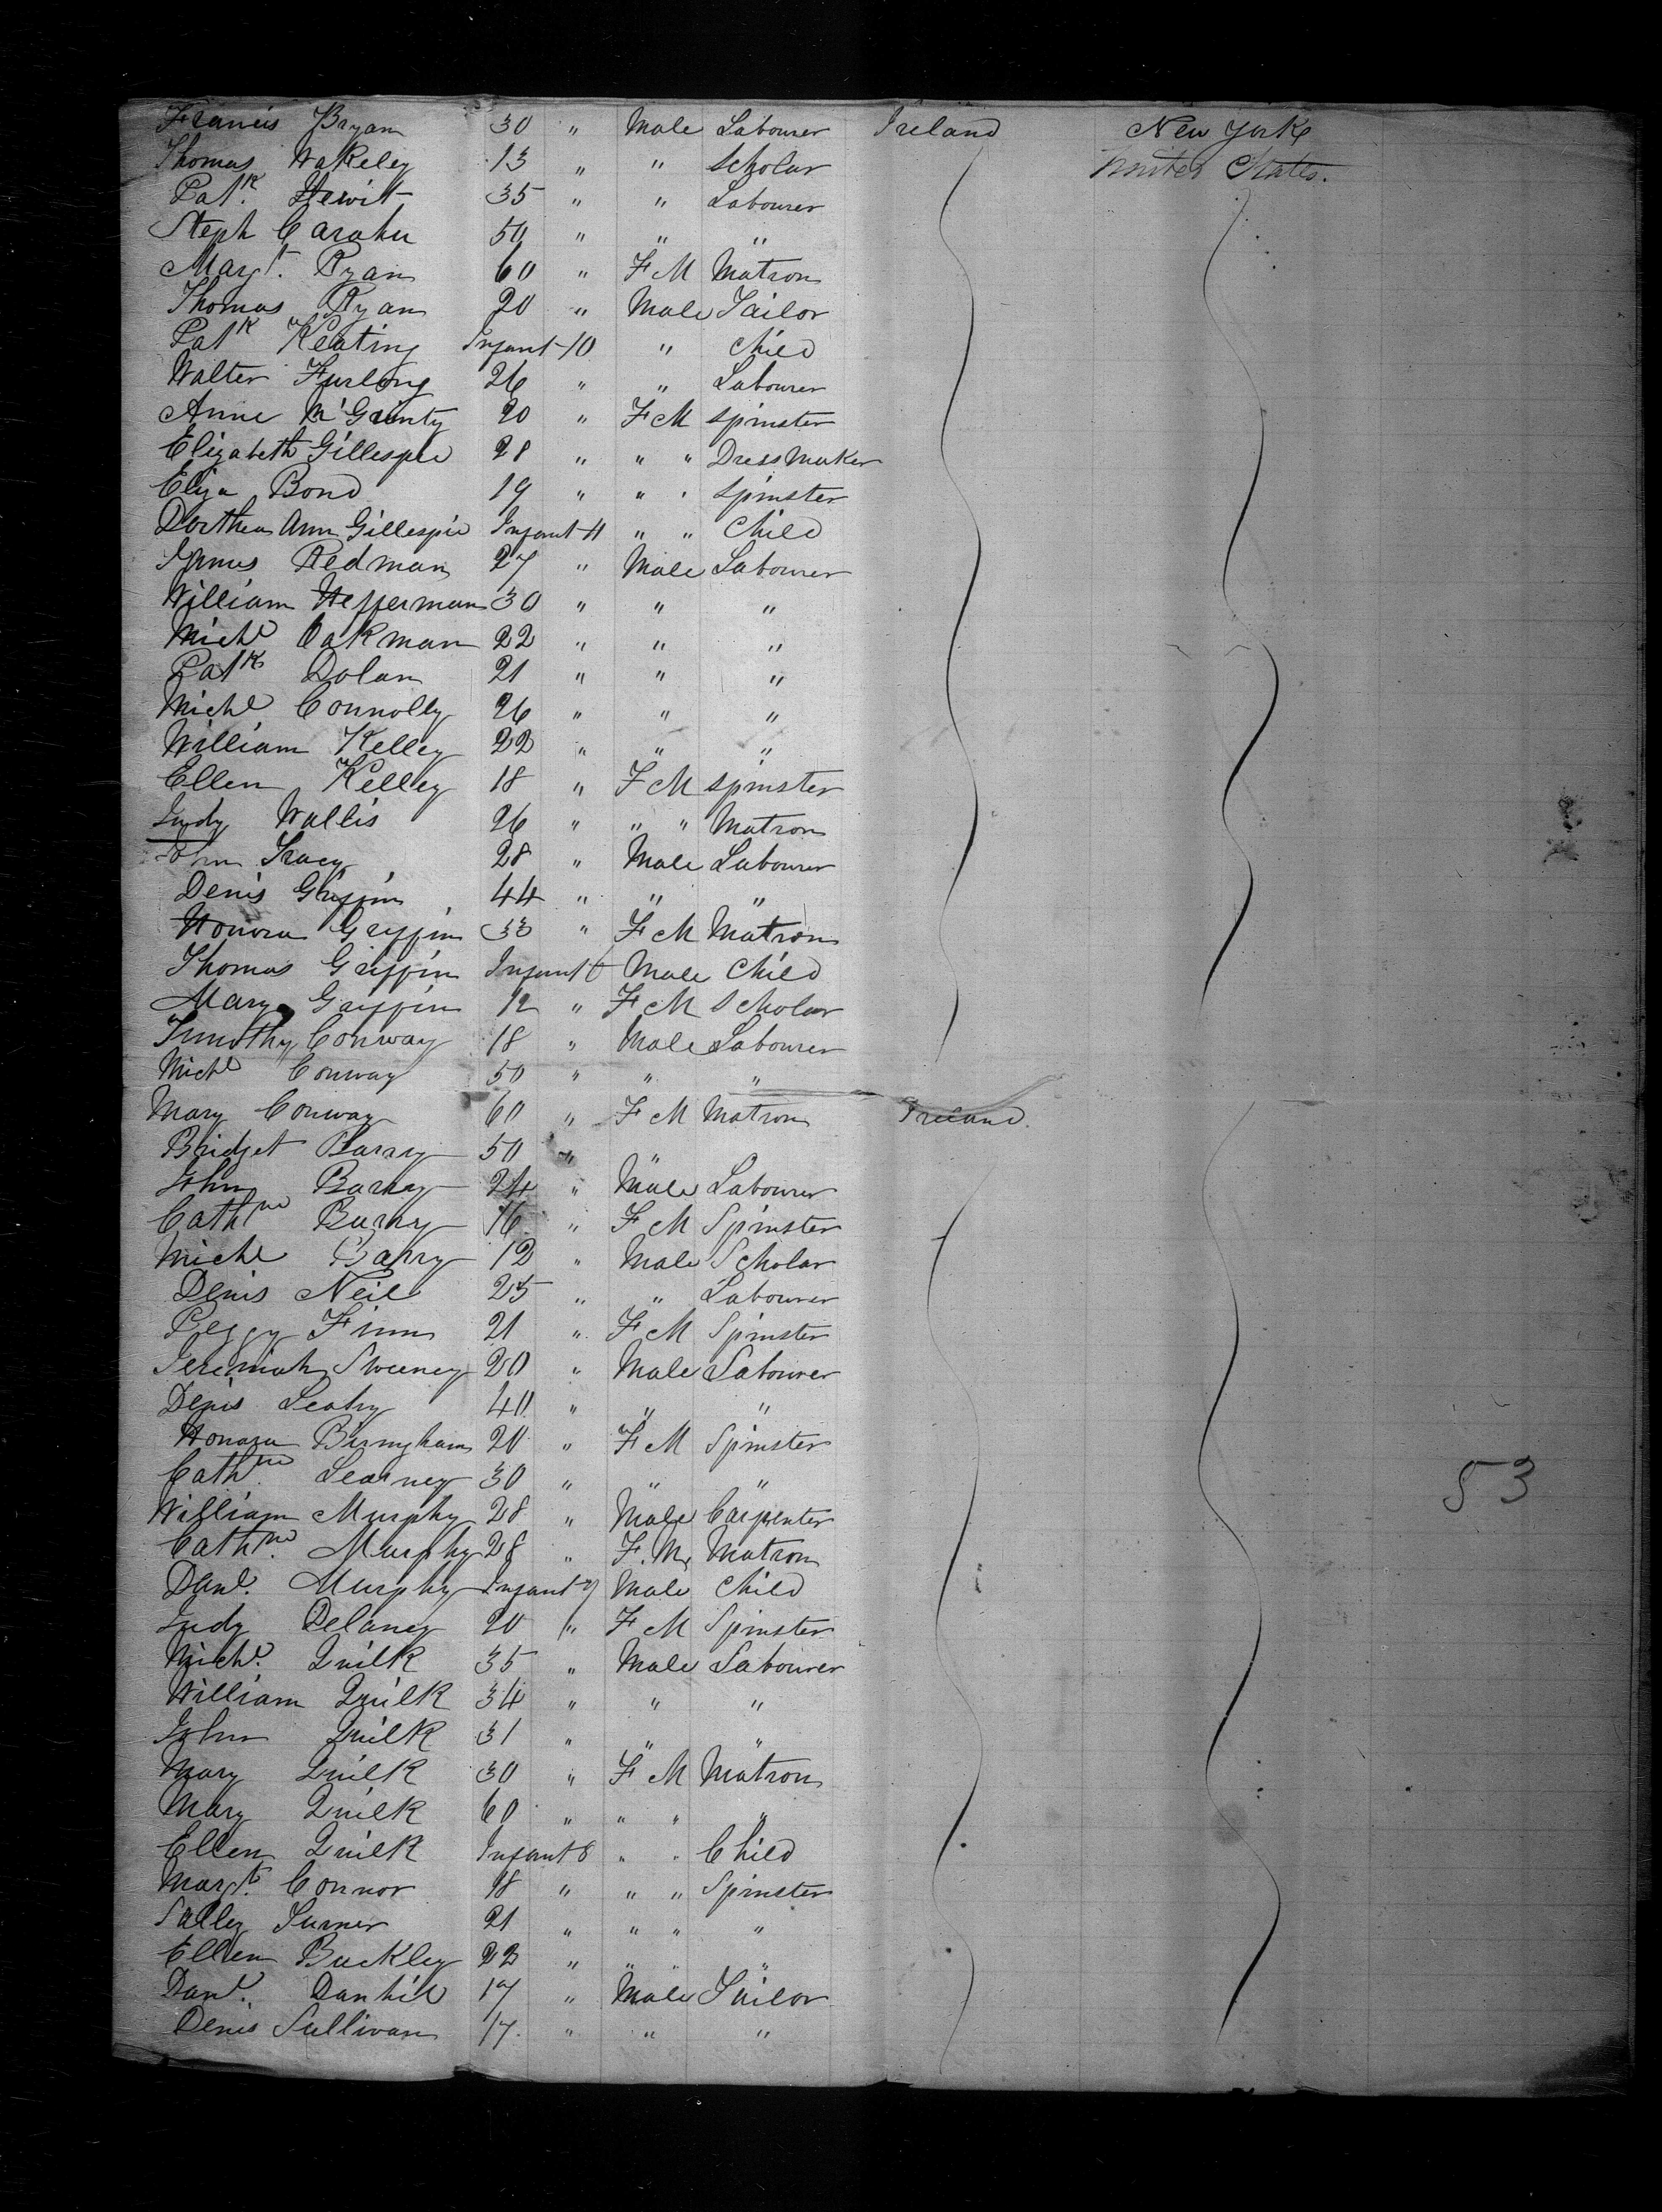 Francis Bryan 30 " Male Labourer Ireland New York
Thomas Wakeley 13 " " Scholar United States.
Patk. Hewit 35 " " Labourer
Steph 50 " " "
Margt. Ryan 60 " F M Matron
Thomas Ryan 20 " Male Tailor
Patk Keating Infant 10 " Child
Walter Furlong 26 " " Labourer
Anne McGrinty 20 " F M Spinster
Elizabeth Gillespie 28 " " " Dress Maker
Eliza Bond 19 " " " Spinster
Dorthea Ann Gillespie Infant 11 " " Child
James Redman 27 " Male Labourer
William Hefferman 30 " " "
Michl Oakman 22 " " "
Patk Dolan 21 " " "
Michl Connolly 26 " " "
William Kelley 22 " " "
Ellen Kelley 18 " F M Spinster
Judy Wallis 26 " " " Matron
John Tracy 28 " Male Labourer
Denis Griffin 44 " " "
Honora Griffin 33 " F M Matron
Thomas Griffin Infant 6 Male Child
Mary Griffin 12 " F M Scholar
Timothy Conway 18 " Male Labourer
Michl Conway 50 " " "
Mary Conway 60 " F M Matron Ireland.
Bridget Barry 50 " "
John Barry 24 " Male Labourer
Cathne Barry 16 " F M Spinster
Michl Barry 12 " Male Scholar
Denis Neil 25 " " Labourer
Peggy Finn 21 " F M Spinster
Jeremiah Sweeney 20 " Male Labourer
Denis Leahy 40 " " "
Honora Birmgham 20 " F M Spinster
Cathne. Learney 30 " " "
53
William Murphy 28 " Male Carpenter
Cathne. Murphy 28 " F. M. Matron
Danl. Murphy Infant 7 Male Child
Judy Delaney 20 " F M Spinster
Michl. Quilk 35 " Male Labourer
William Quilk 34 " " "
John Quilk 31 " " "
Mary Quilk 30 " F M Matron
Mary Quilk 60 " " " "
Ellen Quilk Infant 8 " " Child
Margt. Connor 18 " " " Spinster
Salley Turner 21 " " " "
Ellen Buckley 22 " " " "
Danl. Danhil 17 " Male Tailor
Denis Sullivan 17. " " "